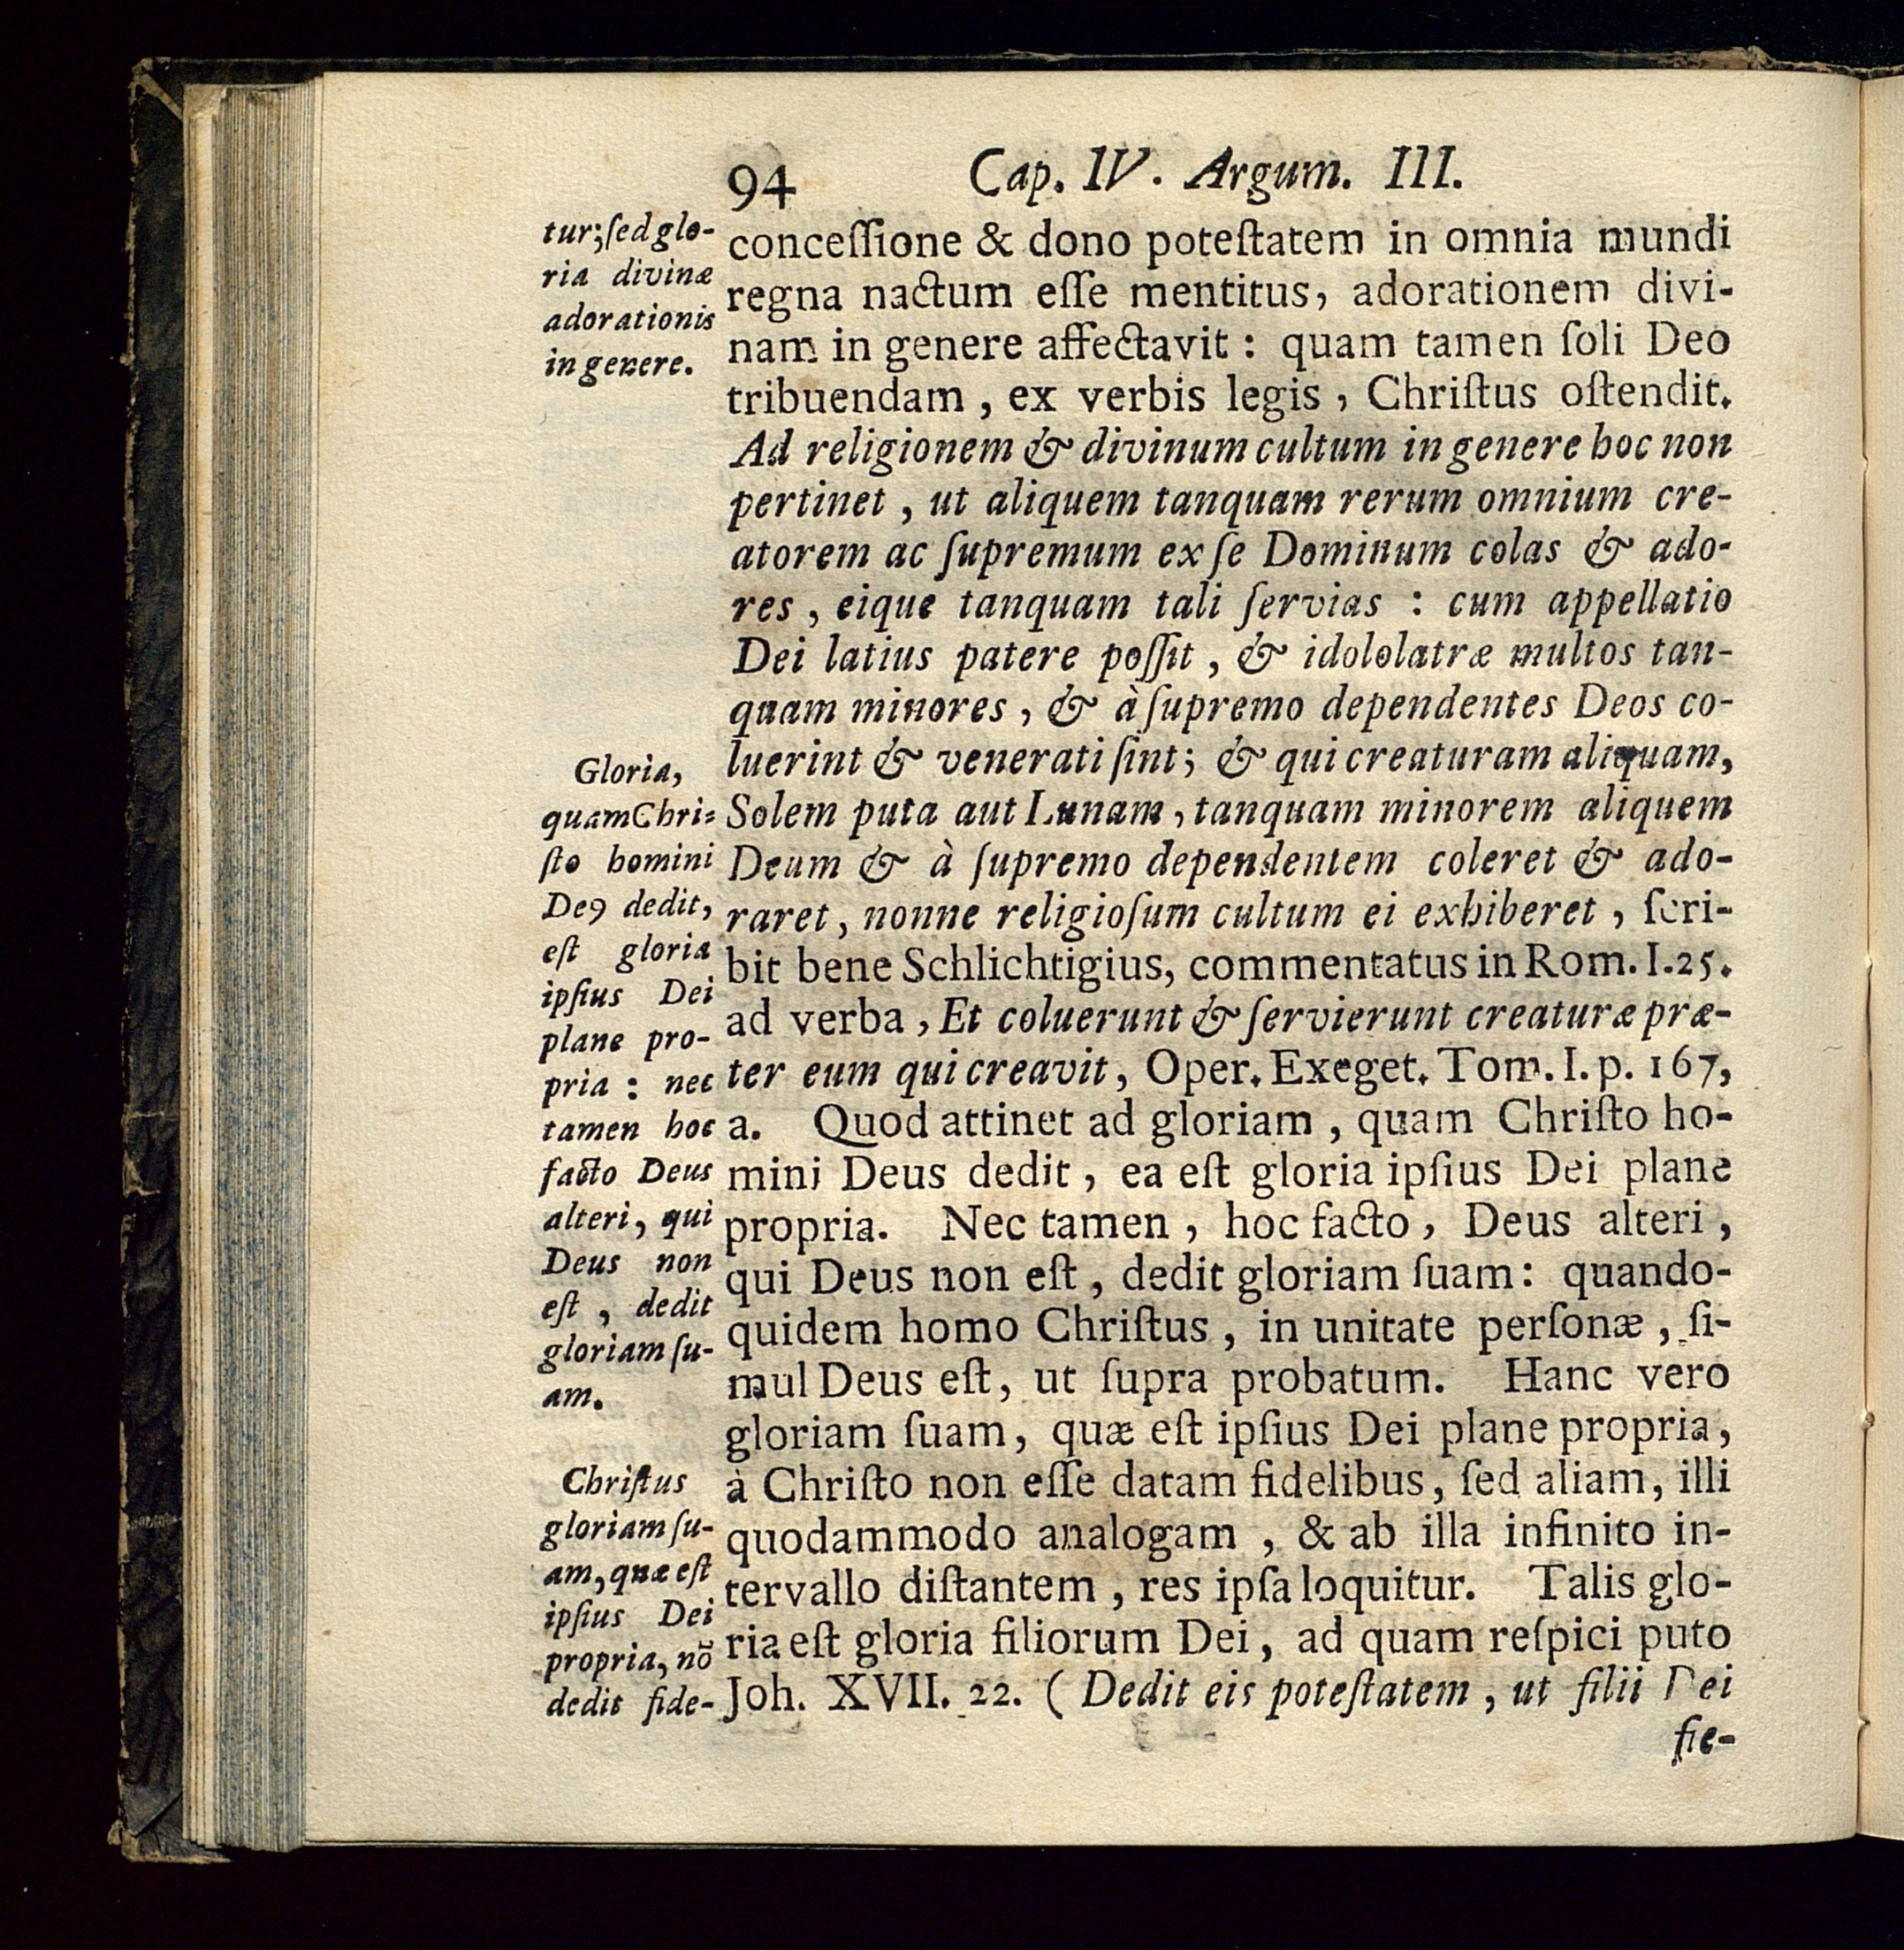 94 Cap. IV. Argum. III.
tur; ſed glo-
ria divinæ
adorationis
in genere.
conceſſione & dono poteſtatem in omnia mundi
regna nactum eſſe mentitus, adorationem divi-
nam in genere affectavit: quam tamen ſoli Deo
tribuendam, ex verbis legis, Chriſtus oſtendit.
Ad religionem & divinum cultum in genere hoc non
pertinet, ut aliquem tanquam rerum omnium cre-
atorem ac ſupremum ex ſe Dominum colas & ado-
res, eique tanquam tali ſervias: cum appellatio
Dei latius patere poſſit, & idololatræ multos tan-
quam minores, & à ſupremo dependentes Deos co-
luerint & venerati ſint; & qui creaturam aliquam,
Solem puta aut Lunam, tanquam minorem aliquem
Deum & à ſupremo dependentem coleret & ado-
raret, nonne religioſum cultum ei exhiberet, ſcri-
bit bene Schlichtigius, commentatus in Rom. I. 25.
ad verba, Et coluerunt & ſervierunt creaturæ præ-
ter eum qui creavit, Oper. Exeget. Tom. I. p. 167,
a. Quod attinet ad gloriam, quam Chriſto ho-
mini Deus dedit, ea eſt gloria ipſius Dei plane
propria. Nec tamen, hoc facto, Deus alteri,
qui Deus non eſt, dedit gloriam ſuam: quando-
quidem homo Chriſtus, in unitate perſonæ, ſi-
mul Deus eſt, ut ſupra probatum. Hanc vero
gloriam ſuam, quæ eſt ipſius Dei plane propria,
à Chriſto non eſſe datam fidelibus, ſed aliam, illi
quodammodo analogam, & ab illa infinito in-
tervallo diſtantem, res ipſa loquitur. Talis glo-
ria eſt gloria filiorum Dei, ad quam reſpici puto
Joh. XVII. 22. (Dedit eis poteſtatem, ut filii Dei
fie-
Gloria,
quam Chri-
ſto homini
Deꝰ dedit,
eſt gloria
ipſius Dei
plane pro-
pria: nec
tamen hoc
facto Deus
alteri, qui
Deus non
eſt, dedit
gloriam ſu-
am.
Chriſtus
gloriam ſu-
am, quæ eſt
ipſius Dei
propria, nõ
dedit fide-